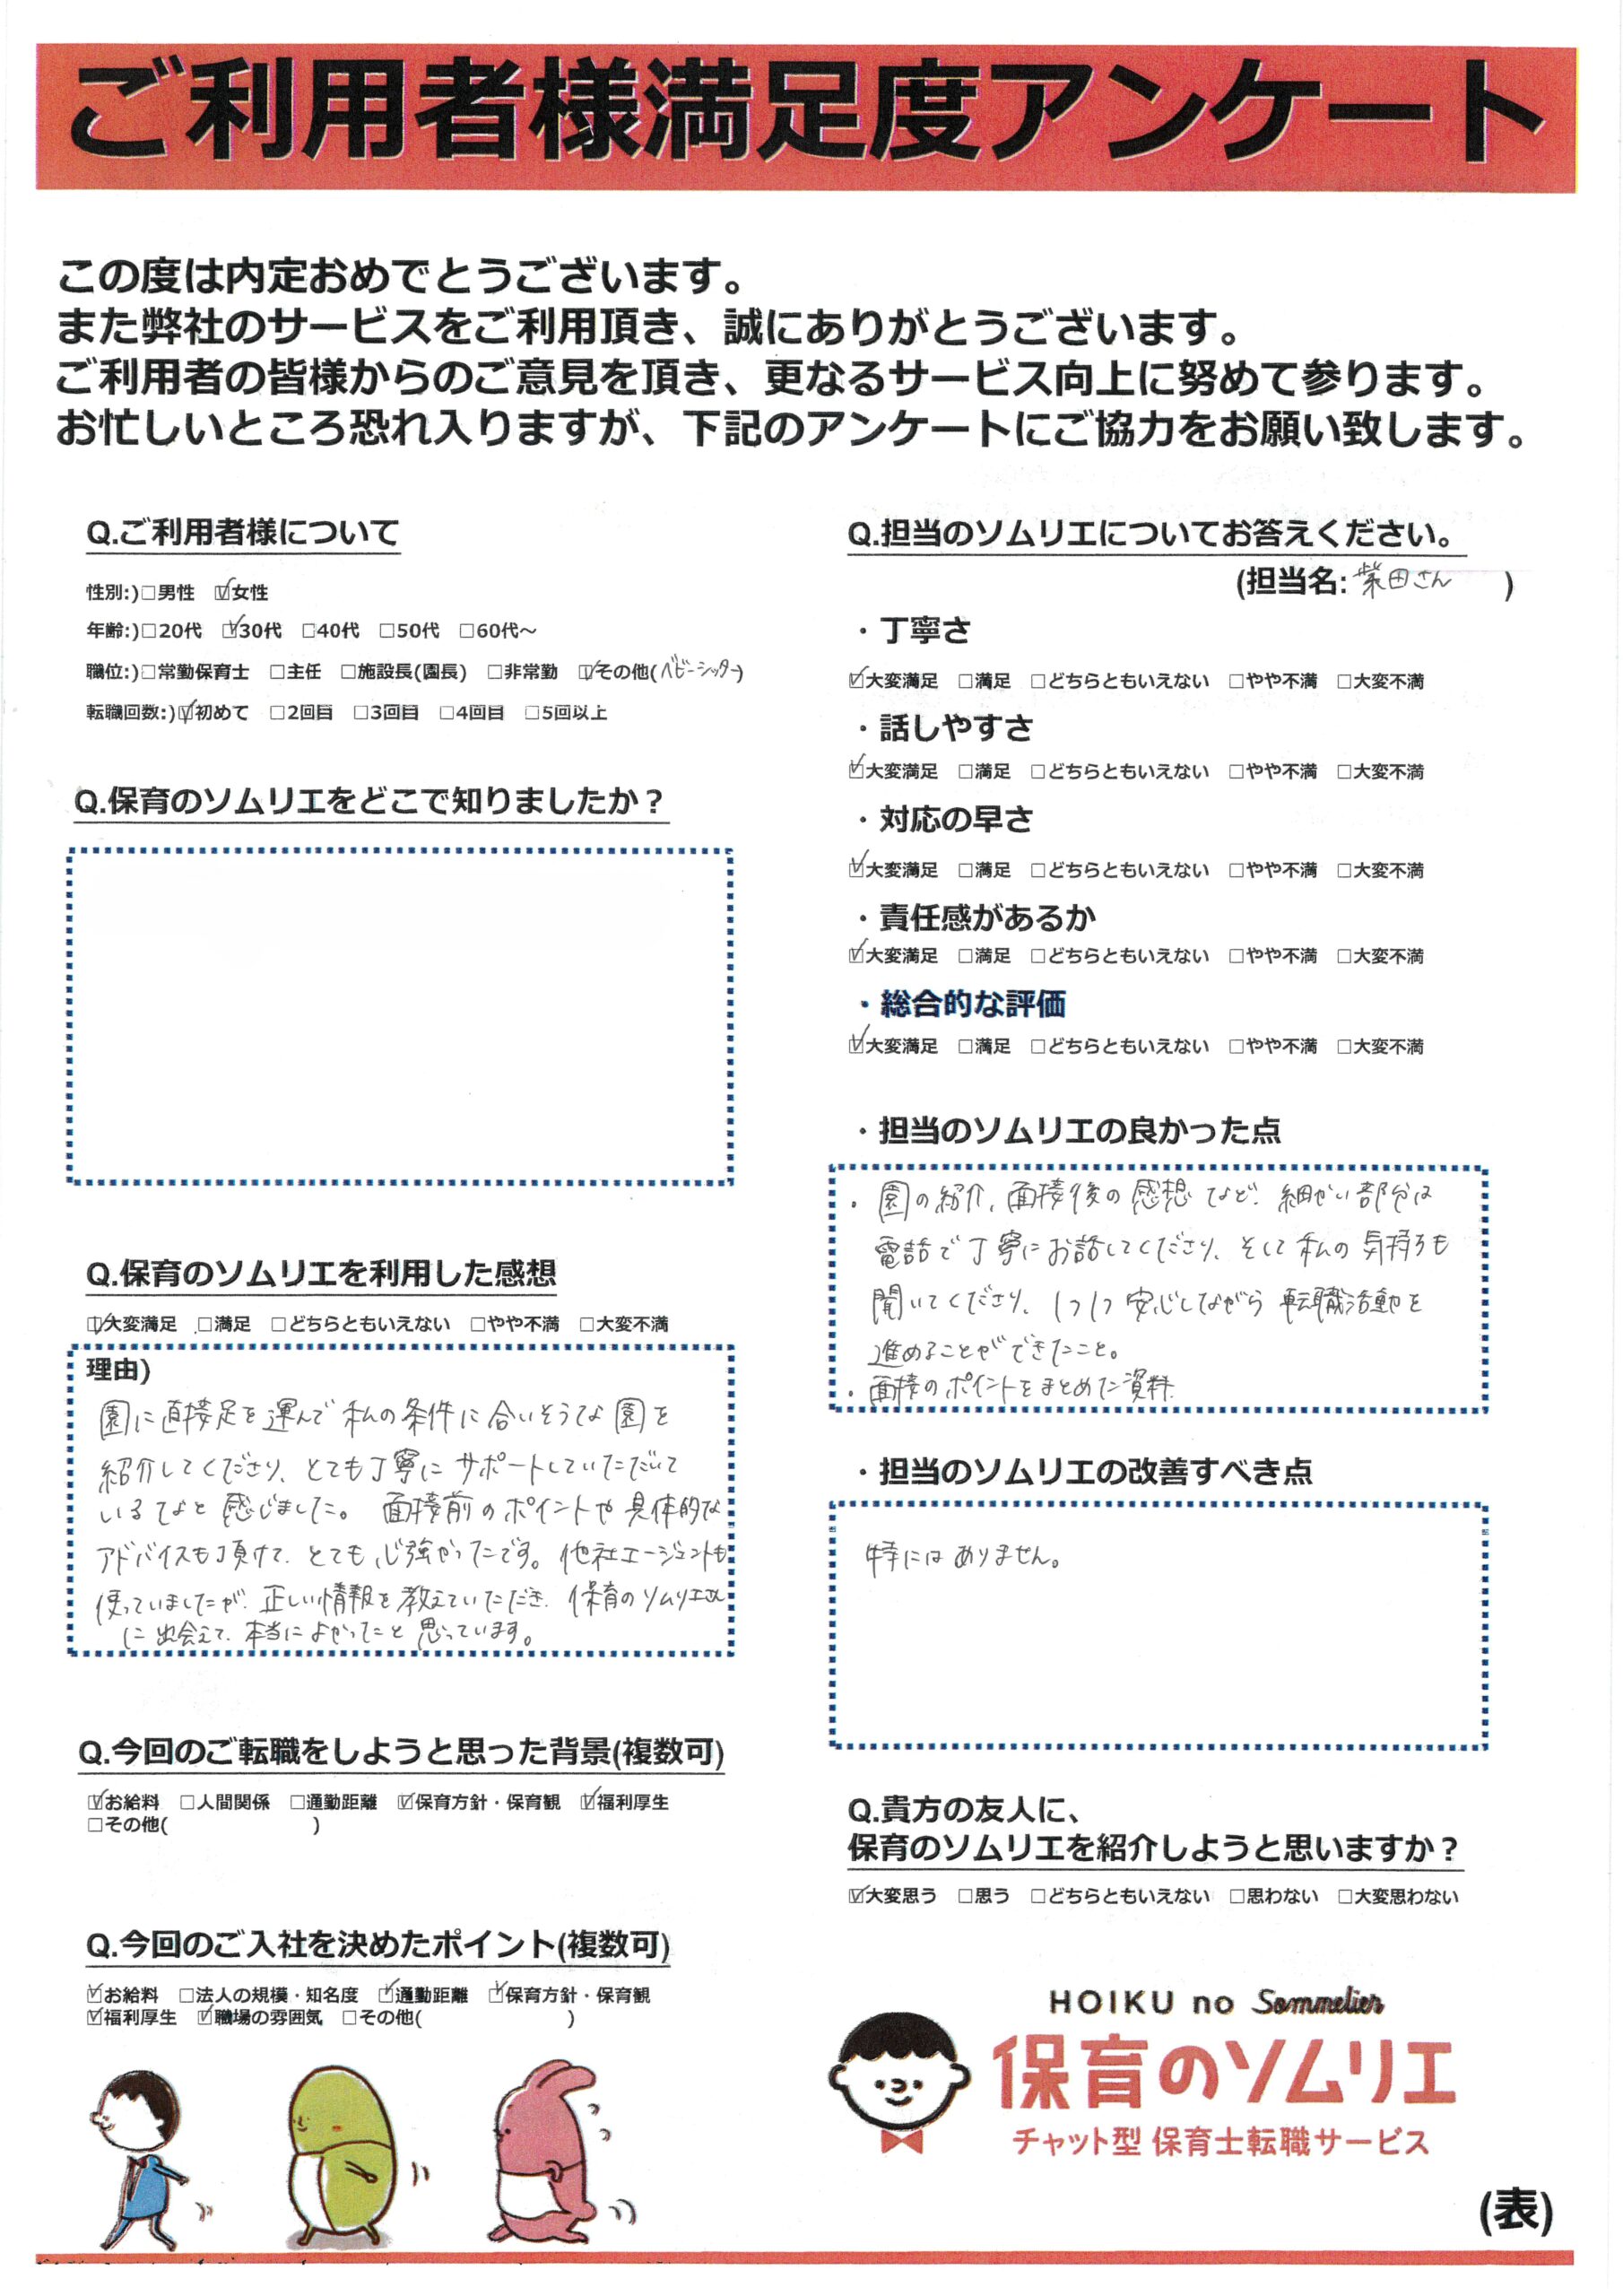 ご利用者様満足度アンケート
この度は内定おめでとうございます。
また弊社のサービスをご利用頂き、誠にありがとうございます。
ご利用者の皆様からのご意見を頂き、更なるサービス向上に努めて参ります。
お忙しいところ恐れ入りますが、下記のアンケートにご協力をお願い致します。
Q.ご利用者様について
性別:)□男性 ☑女性
年齢:)□20代 ☑30代 □40代 □50代 □60代～
職位:)□常勤保育士 □主任 □施設長(園長) □非常勤 ☑その他(ベビーシッター)
転職回数:)☑初めて □2回目 □3回目 □4回目 □5回以上
Q.保育のソムリエをどこで知りましたか？
Q.保育のソムリエを利用した感想
☑大変満足 □満足 □どちらともいえない □やや不満 □大変不満
理由)
園に直接足を運んで私の条件に合いそうな園を
紹介してくださり、とても丁寧にサポートしていただいて
いるなと感じました。面接前のポイントや具体的な
アドバイスも頂けて、とても心強かったです。他社エージェントも
使っていましたが、正しい情報を教えていただき、保育のソムリエさん
に出会えて、本当によかったと思っています。
Q.今回のご転職をしようと思った背景(複数可)
☑お給料 □人間関係 □通勤距離 ☑保育方針・保育観 ☑福利厚生
□その他( )
Q.今回のご入社を決めたポイント(複数可)
☑お給料 □法人の規模・知名度 ☑通勤距離 ☑保育方針・保育観
☑福利厚生 ☑職場の雰囲気 □その他( )
Q.担当のソムリエについてお答えください。
(担当名:柴田さん )
・丁寧さ
☑大変満足 □満足 □どちらともいえない □やや不満 □大変不満
・話しやすさ
☑大変満足 □満足 □どちらともいえない □やや不満 □大変不満
・対応の早さ
☑大変満足 □満足 □どちらともいえない □やや不満 □大変不満
・責任感があるか
☑大変満足 □満足 □どちらともいえない □やや不満 □大変不満
・総合的な評価
☑大変満足 □満足 □どちらともいえない □やや不満 □大変不満
・担当のソムリエの良かった点
・園の紹介、面接後の感想など、細かい部分は
電話で丁寧にお話してくださり、そして私の気持ちも
聞いてくださり、1つ1つ安心しながら転職活動を
進めることができたこと。
・面接のポイントをまとめた資料
・担当のソムリエの改善すべき点
特にはありません。
Q.貴方の友人に、
保育のソムリエを紹介しようと思いますか？
☑大変思う □思う □どちらともいえない □思わない □大変思わない
HOIKU no Sommelier
保育のソムリエ
チャット型 保育士転職サービス
(表)